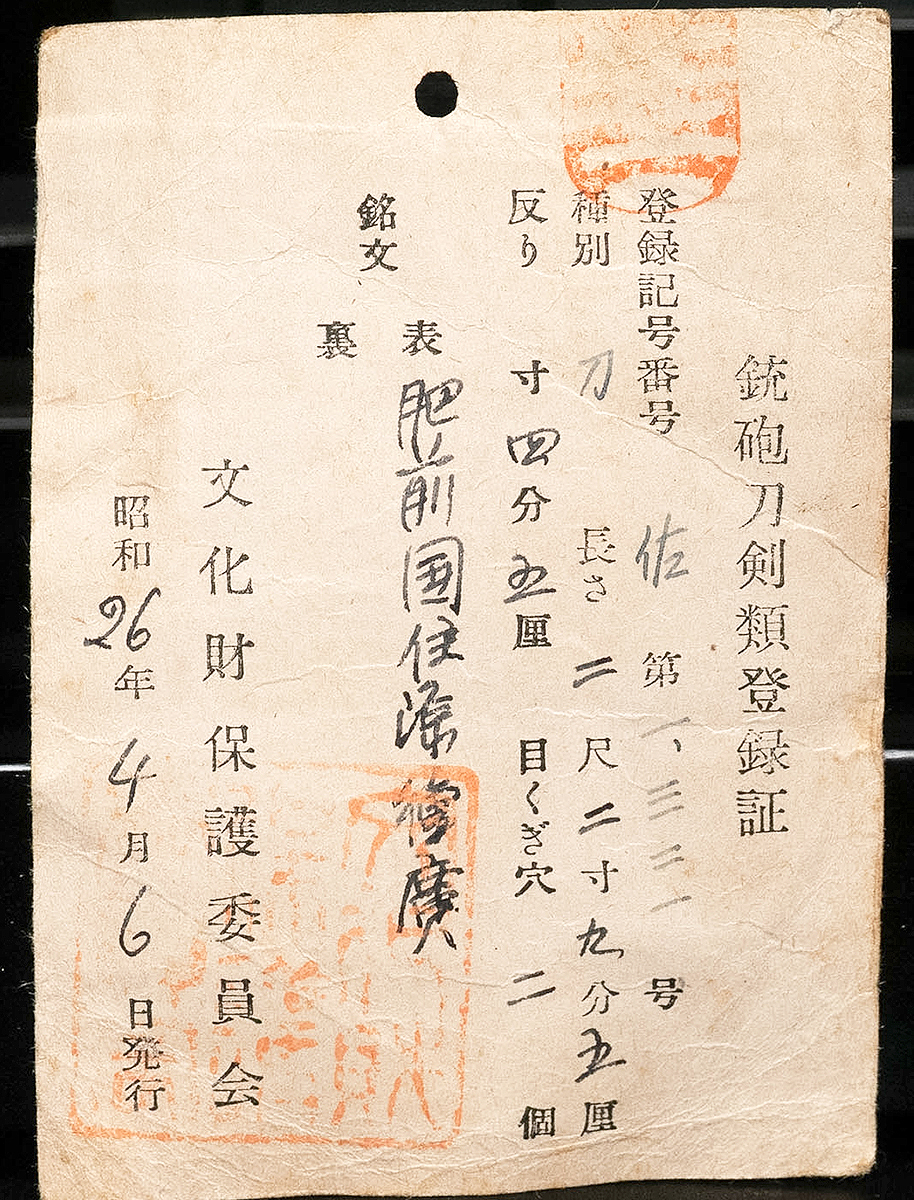 銃砲刀剣類登録証
登録記号番号 佐 第一、三三一号
種別 刀 長さ 二尺二寸九分五厘
反り 寸四分五厘 目くぎ穴 二個
銘文
表 肥前国住源 廣
裏
文化財保護委員会
昭和26年4月6日発行